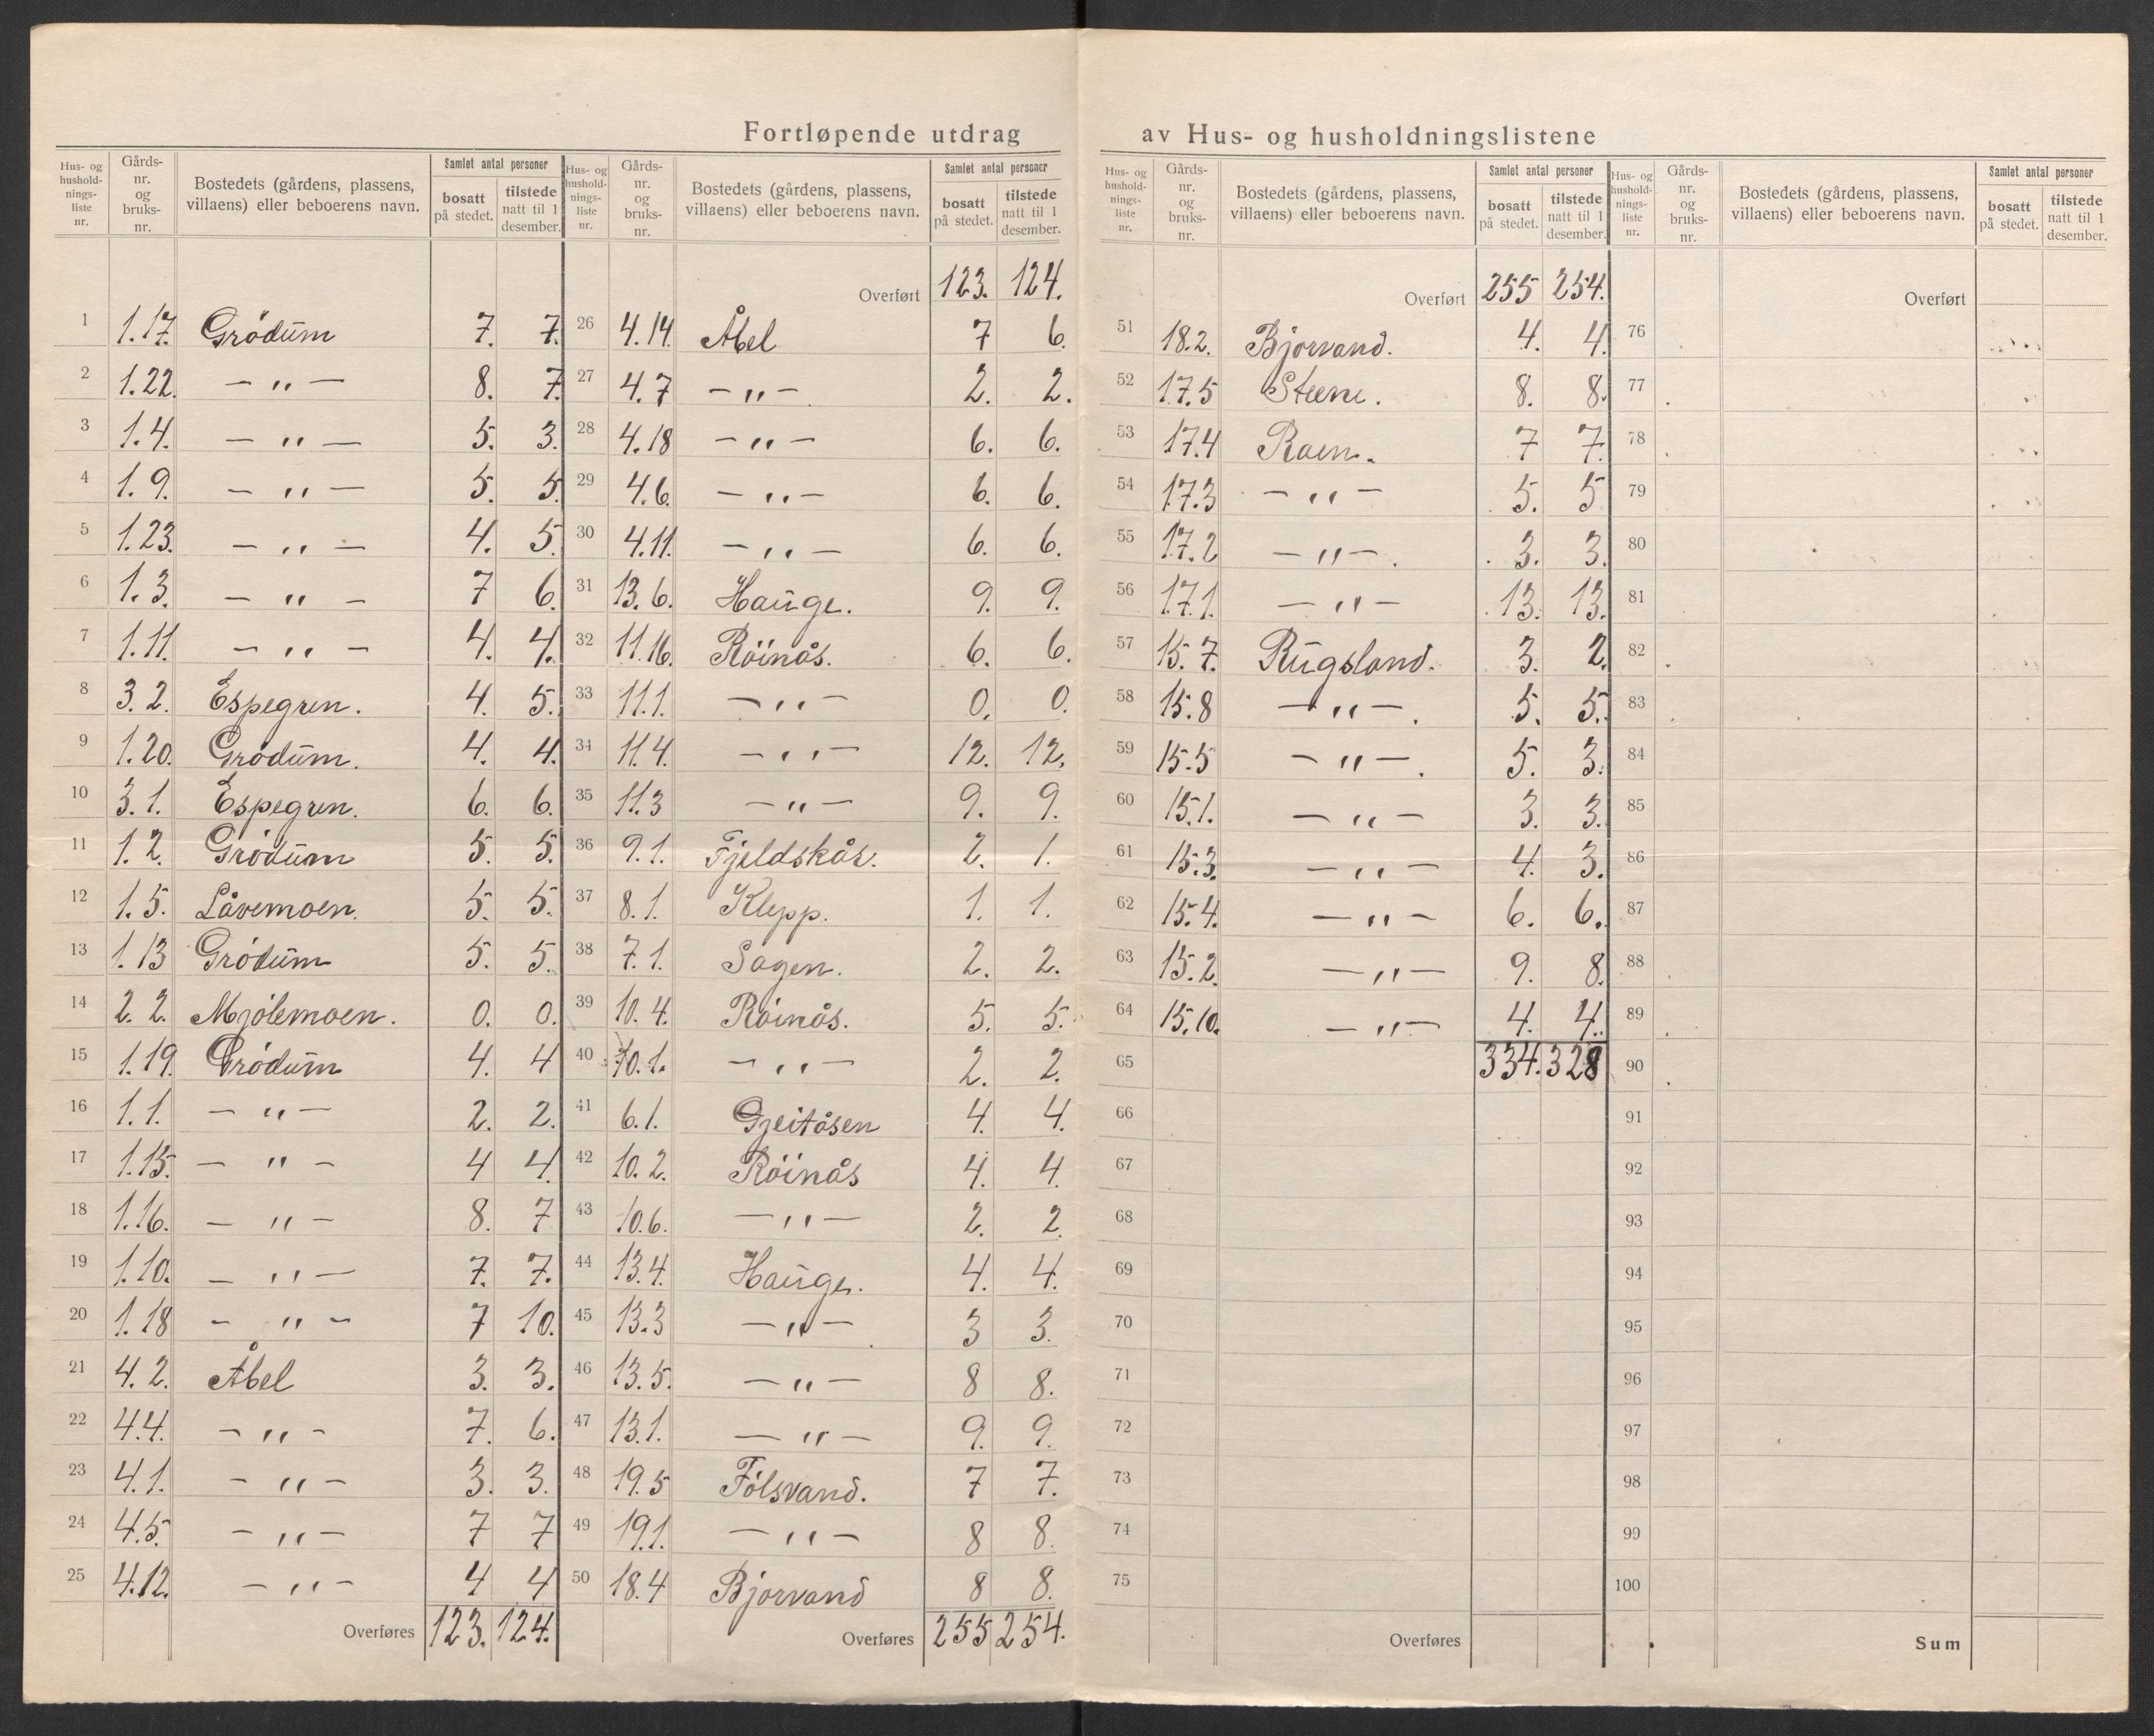 Fortløpende utdrag av Hus- og husholdningslistene
Hus- og husholdningsliste nr. Gårds-nr. og bruks-nr. Bostedets (gårdens, plassens, villaens) eller beboerens navn. Samlet antal personer bosatt på stedet. tilstede natt til 1 desember.
1 1.17. Grödum 7. 7.
2 1.22. — „ — 8. 7.
3 1.4. — „ — 5. 3.
4 1.9. — „ — 5. 5.
5 1.23. — „ — 4. 5.
6 1.3. — „ — 7 6.
7 1.11. — „ — 4. 4.
8 3.2. Espegren. 4. 5.
9 1.20. Grödum. 4. 4.
10 3.1. Espegren. 6. 6.
11 1.2. Grödum 5. 5.
12 1.5. Låvemoen. 5. 5.
13 1.13 Grödum 5. 5.
14 2.2. Mjölemoen. 0. 0.
15 1.19. Grödum 4. 4
16 1.1. — „ — 2. 2.
17 1.15. — „ — 4 4.
18 1.16. — „ — 8. 7
19 1.10. — „ — 7. 7.
20 1.18 — „ — 7 10.
21 4.2. Åbel 3. 3.
22 4.4. — „ — 7. 6.
23 4.1. — „ — 3. 3.
24 4.5. — „ — 7 7
25 4.12. — „ — 4 4
Overføres 123. 124.
Hus- og husholdningsliste nr. Gårds-nr. og bruks-nr. Bostedets (gårdens, plassens, villaens) eller beboerens navn. Samlet antal personer bosatt på stedet. tilstede natt til 1 desember.
Overført 123. 124.
26 4.14. Åbel 7 6.
27 4.7 — „ — 2. 2.
28 4.18 — „ — 6. 6.
29 4.6. — „ — 6. 6.
30 4.11. — „ — 6. 6.
31 13.6. Hauge. 9. 9.
32 11.16. Röinås. 6. 6.
33 11.1. — „ — 0. 0.
34 11.4. — „ — 12. 12.
35 11.3 — „ — 9. 9.
36 9.1. Fjeldskås. 2. 1.
37 8.1. Klepp. 1. 1.
38 7.1. Sagen. 2. 2.
39 10.4. Röinås. 5. 5.
40 10.1. — „ — 2. 2.
41 6.1. Gjeitåsen 4. 4.
42 10.2. Röinås 4. 4.
43 10.6. — „ — 2. 2.
44 13.4. Hauge. 4. 4.
45 13.3 — „ — 3 3.
46 13.5. — „ — 8 8.
47 13.1. — „ — 9. 9.
48 19.5 Fölsvand. 7 7.
49 19.1. — „ — 8 8.
50 18.4 Bjorvand 8 8.
Overføres 255 254.
Hus- og husholdningsliste nr. Gårds-nr. og bruks-nr. Bostedets (gårdens, plassens, villaens) eller beboerens navn. Samlet antal personer bosatt på stedet. tilstede natt til 1 desember.
Overført 255 254.
51 18.2. Bjorvand. 4. 4.
52 17.5 Steene. 8. 8.
53 17.4 Raen. 7 7.
54 17.3 — „ — 5. 5
55 17.2 — „ — 3. 3.
56 17.1. — „ — 13. 13.
57 15.7. Rugsland. 3. 2.
58 15.8 — „ — 5. 5.
59 15.5 — „ — 5. 3.
60 15.1. — „ — 3. 3.
61 15.3. — „ — 4. 3.
62 15.4. — „ — 6. 6.
63 15.2. — „ — 9. 8.
64 15.10. — „ — 4. 4.
65 334. 328
66
67
68
69
70
71
72
73
74
75
Overføres
Hus- og husholdningsliste nr. Gårds-nr. og bruks-nr. Bostedets (gårdens, plassens, villaens) eller beboerens navn. Samlet antal personer bosatt på stedet. tilstede natt til 1 desember.
Overført
76
77
78
79
80
81
82
83
84
85
86
87
88
89
90
91
92
93
94
95
96
97
98
99
100
Sum